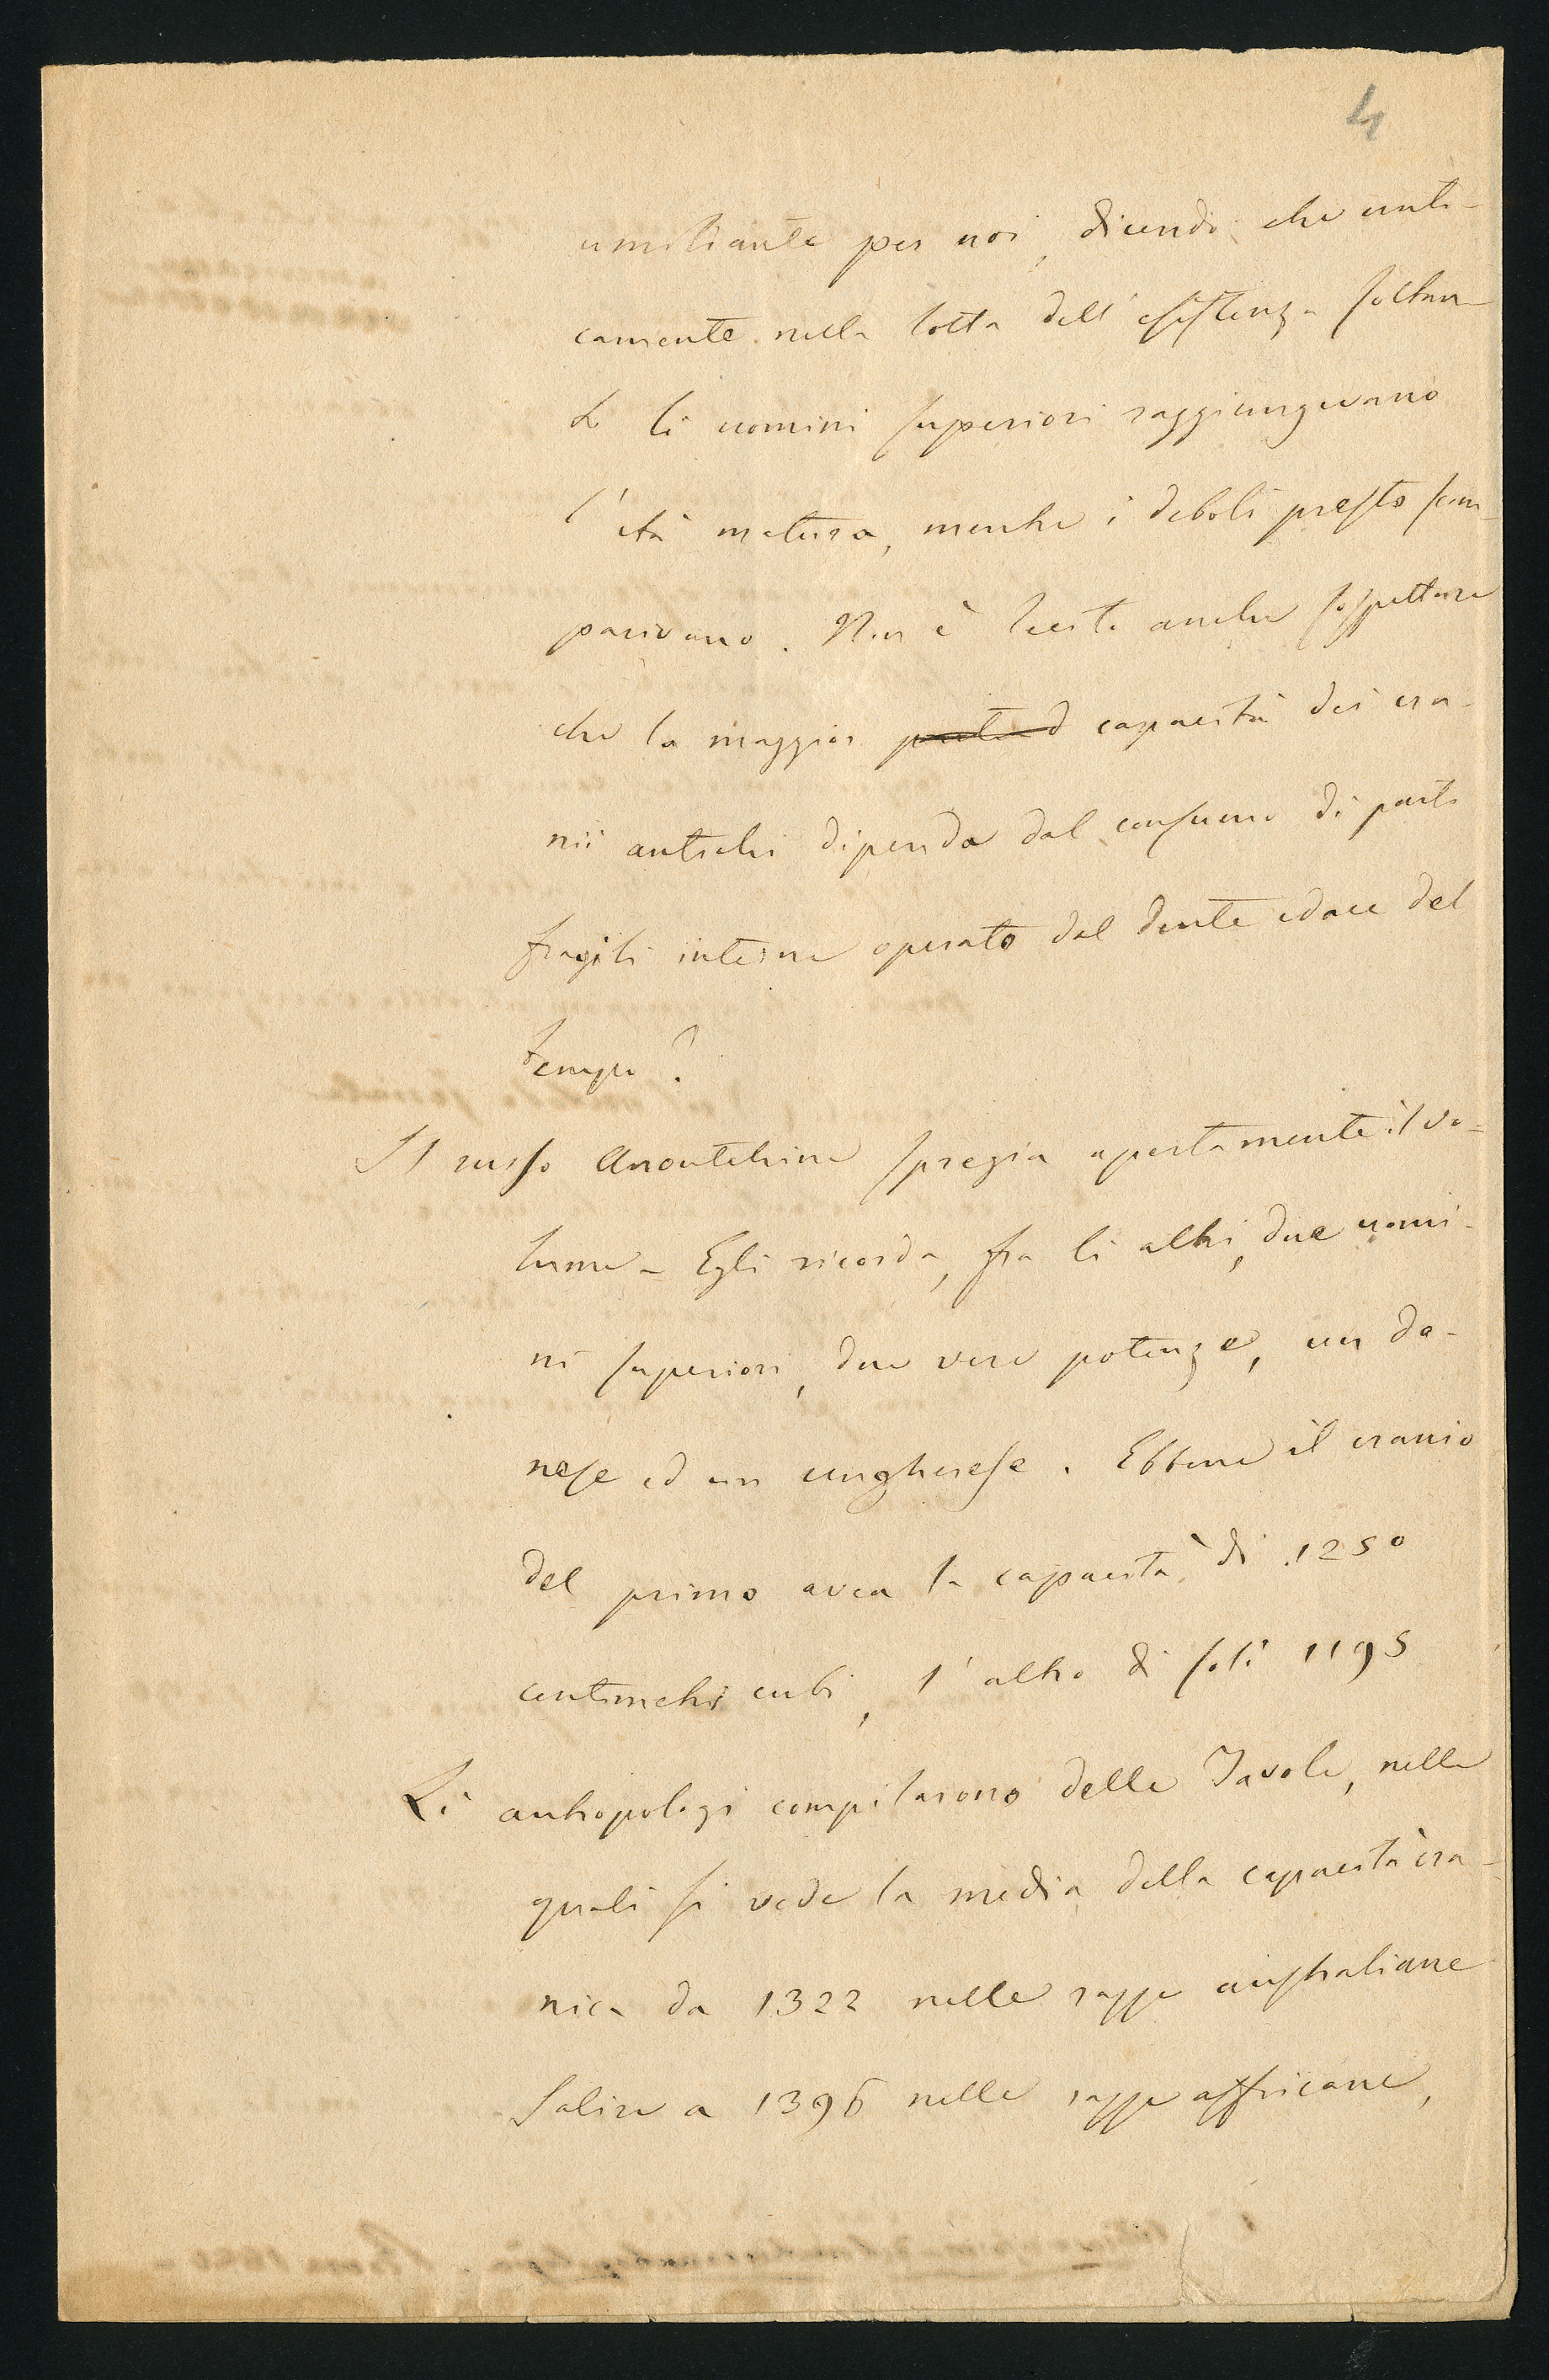 4
umiliante per noi, dicendo che anti-
camente nella lotta dell'esistenza soltan
to li uomini superiori raggiungevano
l'età matura, mentre i deboli presto scom-
parivano. Non è lecito anche sospettare
che la maggior capacità dei cra-
nii antichi dipenda dal consumo di parti
fragili interne operato dal dente edace del
tempo?
Il russo Anoutchine spregia apertamente il vo-
lume – Egli ricorda, fra li altri, due uomi-
ni superiori, due vere potenze, un da-
nese ed un ungherese. Ebbene il cranio
del primo avea la capacità di 1250
centimetri cubi, l'altro di soli 1195
Li antropologi compilarono delle Tavole, nelle
quali si vede la media della capacità cra-
nica da 1322 nelle razze australiane
salire a 1396 nelle razze affricane,